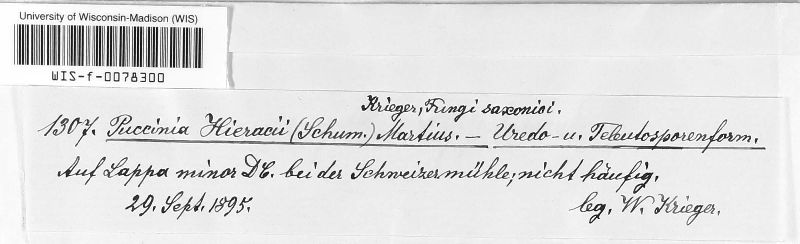 University of Wisconsin-Madison (WIS)
WIS-f-0078300
Krieger, Fungi saxonici.
1307. Puccinia Hieracii (Schum.) Martius. — Uredo- u. Teleutosporenform.
Auf Lappa minor DC. bei der Schweizermühle; nicht häufig.
29. Sept. 1895. leg. W. Krieger.